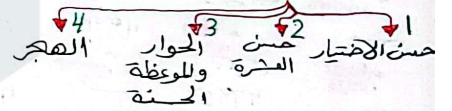 1 2 3 4
حسن الاختيار
حسن العشرة
الحوار وللوعظة الحسنة
الهجر